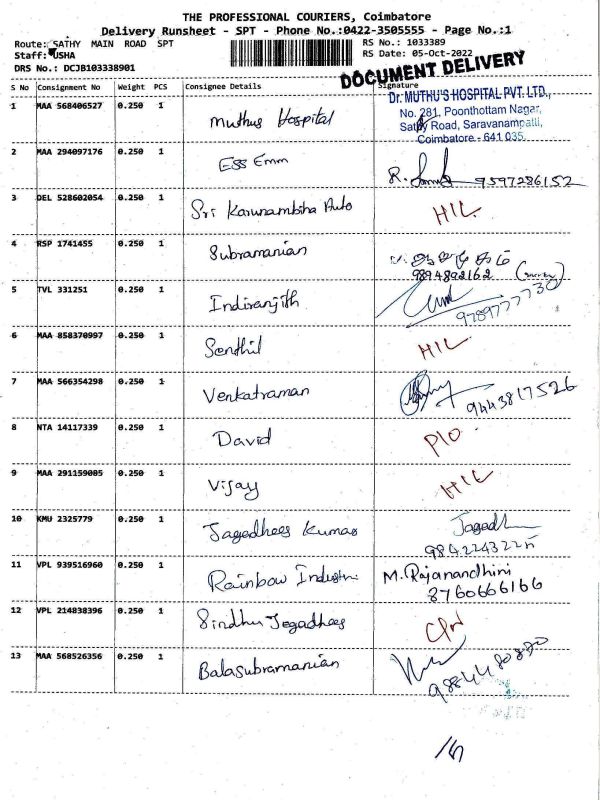 THE PROFESSIONAL COURIERS, Coimbatore
Delivery Runsheet - SPT - Phone No.:0422-3505555 - Page No.:1
Route: SATHY MAIN ROAD SPT
RS No.: 1033389
Staff: USHA
RS Date: 05-Oct-2022
DRS No.: DCJB103338901
DOCUMENT DELIVERY
S No Consignment No Weight PCS Consignee Details Signature
1 MAA 568406527 0.250 1 Muthus Hospital
Dr. MUTHU'S HOSPITAL PVT. LTD.,
No. 281, Poonthottam Nagar,
Sathy Road, Saravanampatti,
Coimbatore - 641 035.
2 MAA 294097176 0.250 1 Ess Emm R. 9597286152
3 DEL 528602054 0.250 1 Sri Karunambiha Auto HIL
4 RSP 1741455 0.250 1 Subramanian
9894892162
5 TVL 331251 0.250 1 Indiranjith
9789777730
6 MAA 858370997 0.250 1 Senthil HIL
7 MAA 566354298 0.250 1 Venkatraman 9443817526
8 NTA 14117339 0.250 1 David P/O
9 MAA 291159005 0.250 1 Vijay HIL
10 KMU 2325779 0.250 1 Jagadhees Kumar Jagadh
11 VPL 939516960 0.250 1 Rainbow Industri M. Rajanandhini
8760666166
12 VPL 214838396 0.250 1 Sindhu Jegadhees
13 MAA 568526356 0.250 1 Balasubramanian
9884480880